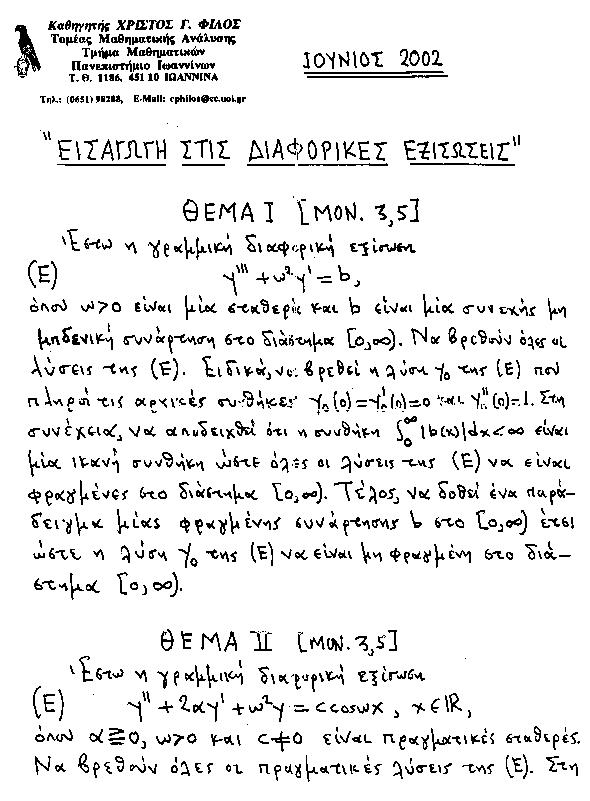 Καθηγητής ΧΡΙΣΤΟΣ Γ. ΦΙΛΟΣ
Τομέας Μαθηματικής Ανάλυσης
Τμήμα Μαθηματικών
Πανεπιστήμιο Ιωαννίνων
Τ. Θ. 1186, 451 10 ΙΩΑΝΝΙΝΑ
Τηλ.: (0651) 98288, E-Mail: cphilos@cc.uoi.gr
ΙΟΥΝΙΟΣ 2002
"ΕΙΣΑΓΩΓΗ ΣΤΙΣ ΔΙΑΦΟΡΙΚΕΣ ΕΞΙΣΩΣΕΙΣ"
ΘΕΜΑ I [ΜΟΝ. 3,5]
Έστω η γραμμική διαφορική εξίσωση
(E) y''' + ω²y' = b,
όπου ω>0 είναι μία σταθερά και b είναι μία συνεχής μη
μηδενική συνάρτηση στο διάστημα [0,∞). Να βρεθούν όλες οι
λύσεις της (E). Ειδικά, να βρεθεί η λύση y₀ της (E) που
πληροί τις αρχικές συνθήκες y₀(0)=y₀'(0)=0 και y₀''(0)=1. Στη
συνέχεια, να αποδειχθεί ότι η συνθήκη ∫₀^∞ |b(x)|dx<∞ είναι
μία ικανή συνθήκη ώστε όλες οι λύσεις της (E) να είναι
φραγμένες στο διάστημα [0,∞). Τέλος, να δοθεί ένα παρά-
δειγμα μίας φραγμένης συνάρτησης b στο [0,∞) έτσι
ώστε η λύση y₀ της (E) να είναι μη φραγμένη στο διά-
στημα [0,∞).
ΘΕΜΑ II [ΜΟΝ. 3,5]
Έστω η γραμμική διαφορική εξίσωση
(E) y'' + 2αy' + ω²y = c cosωx, x∈ℝ,
όπου α≧0, ω>0 και c≠0 είναι πραγματικές σταθερές.
Να βρεθούν όλες οι πραγματικές λύσεις της (E). Στη